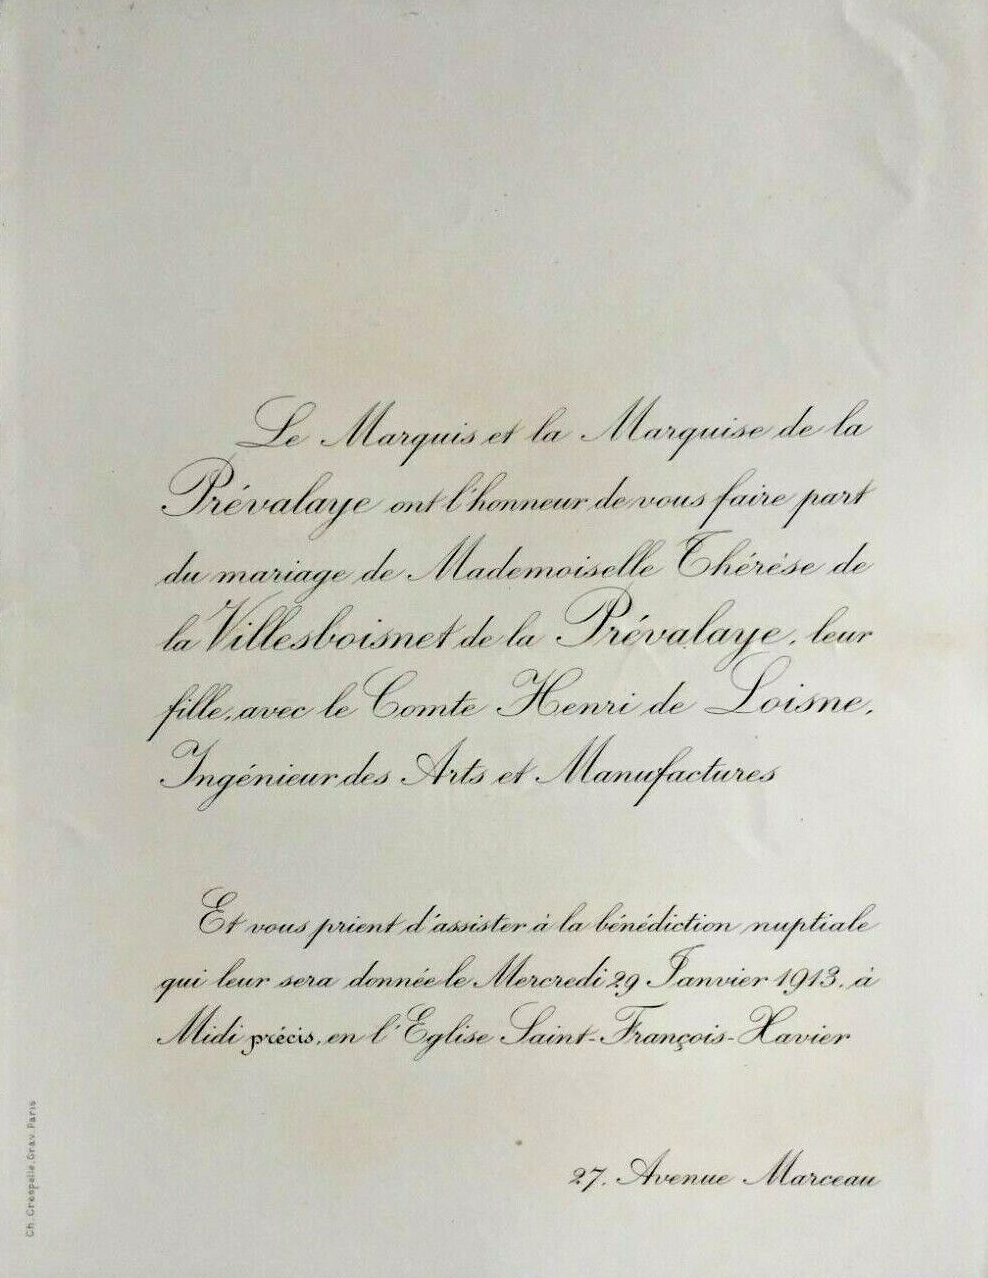 Le Marquis et la Marquise de la
Prévalaye ont l'honneur de vous faire part
du mariage de Mademoiselle Thérèse de
la Villesboisnet de la Prévalaye, leur
fille, avec le Comte Henri de Loisne,
Ingénieur des Arts et Manufactures
Et vous prient d'assister à la bénédiction nuptiale
qui leur sera donnée le Mercredi 29 Janvier 1913, à
Midi précis, en l'Eglise Saint-François-Xavier
27, Avenue Marceau
Ch. Crespelle, Grav. Paris